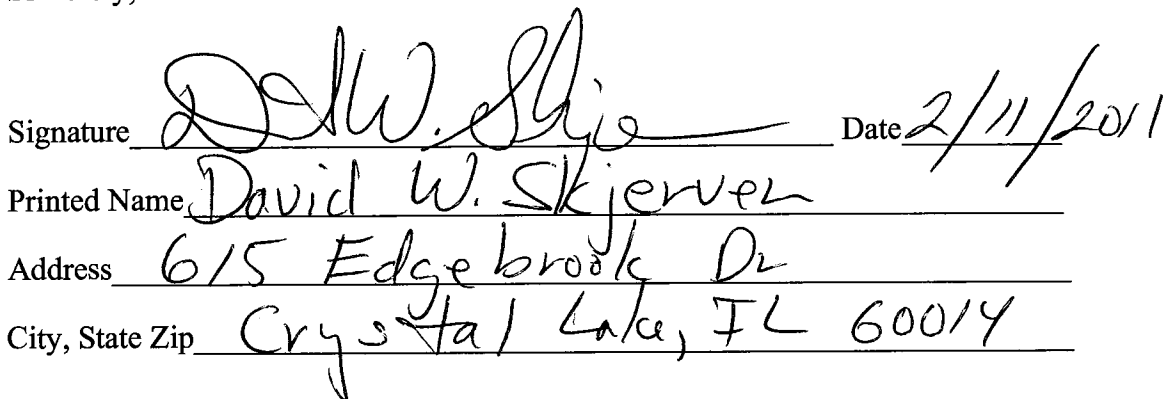 Signature D W. Skje Date 2/11/2011
Printed Name David W. Skjerven
Address 615 Edgebrook Dr
City, State Zip Crystal Lake, IL 60014